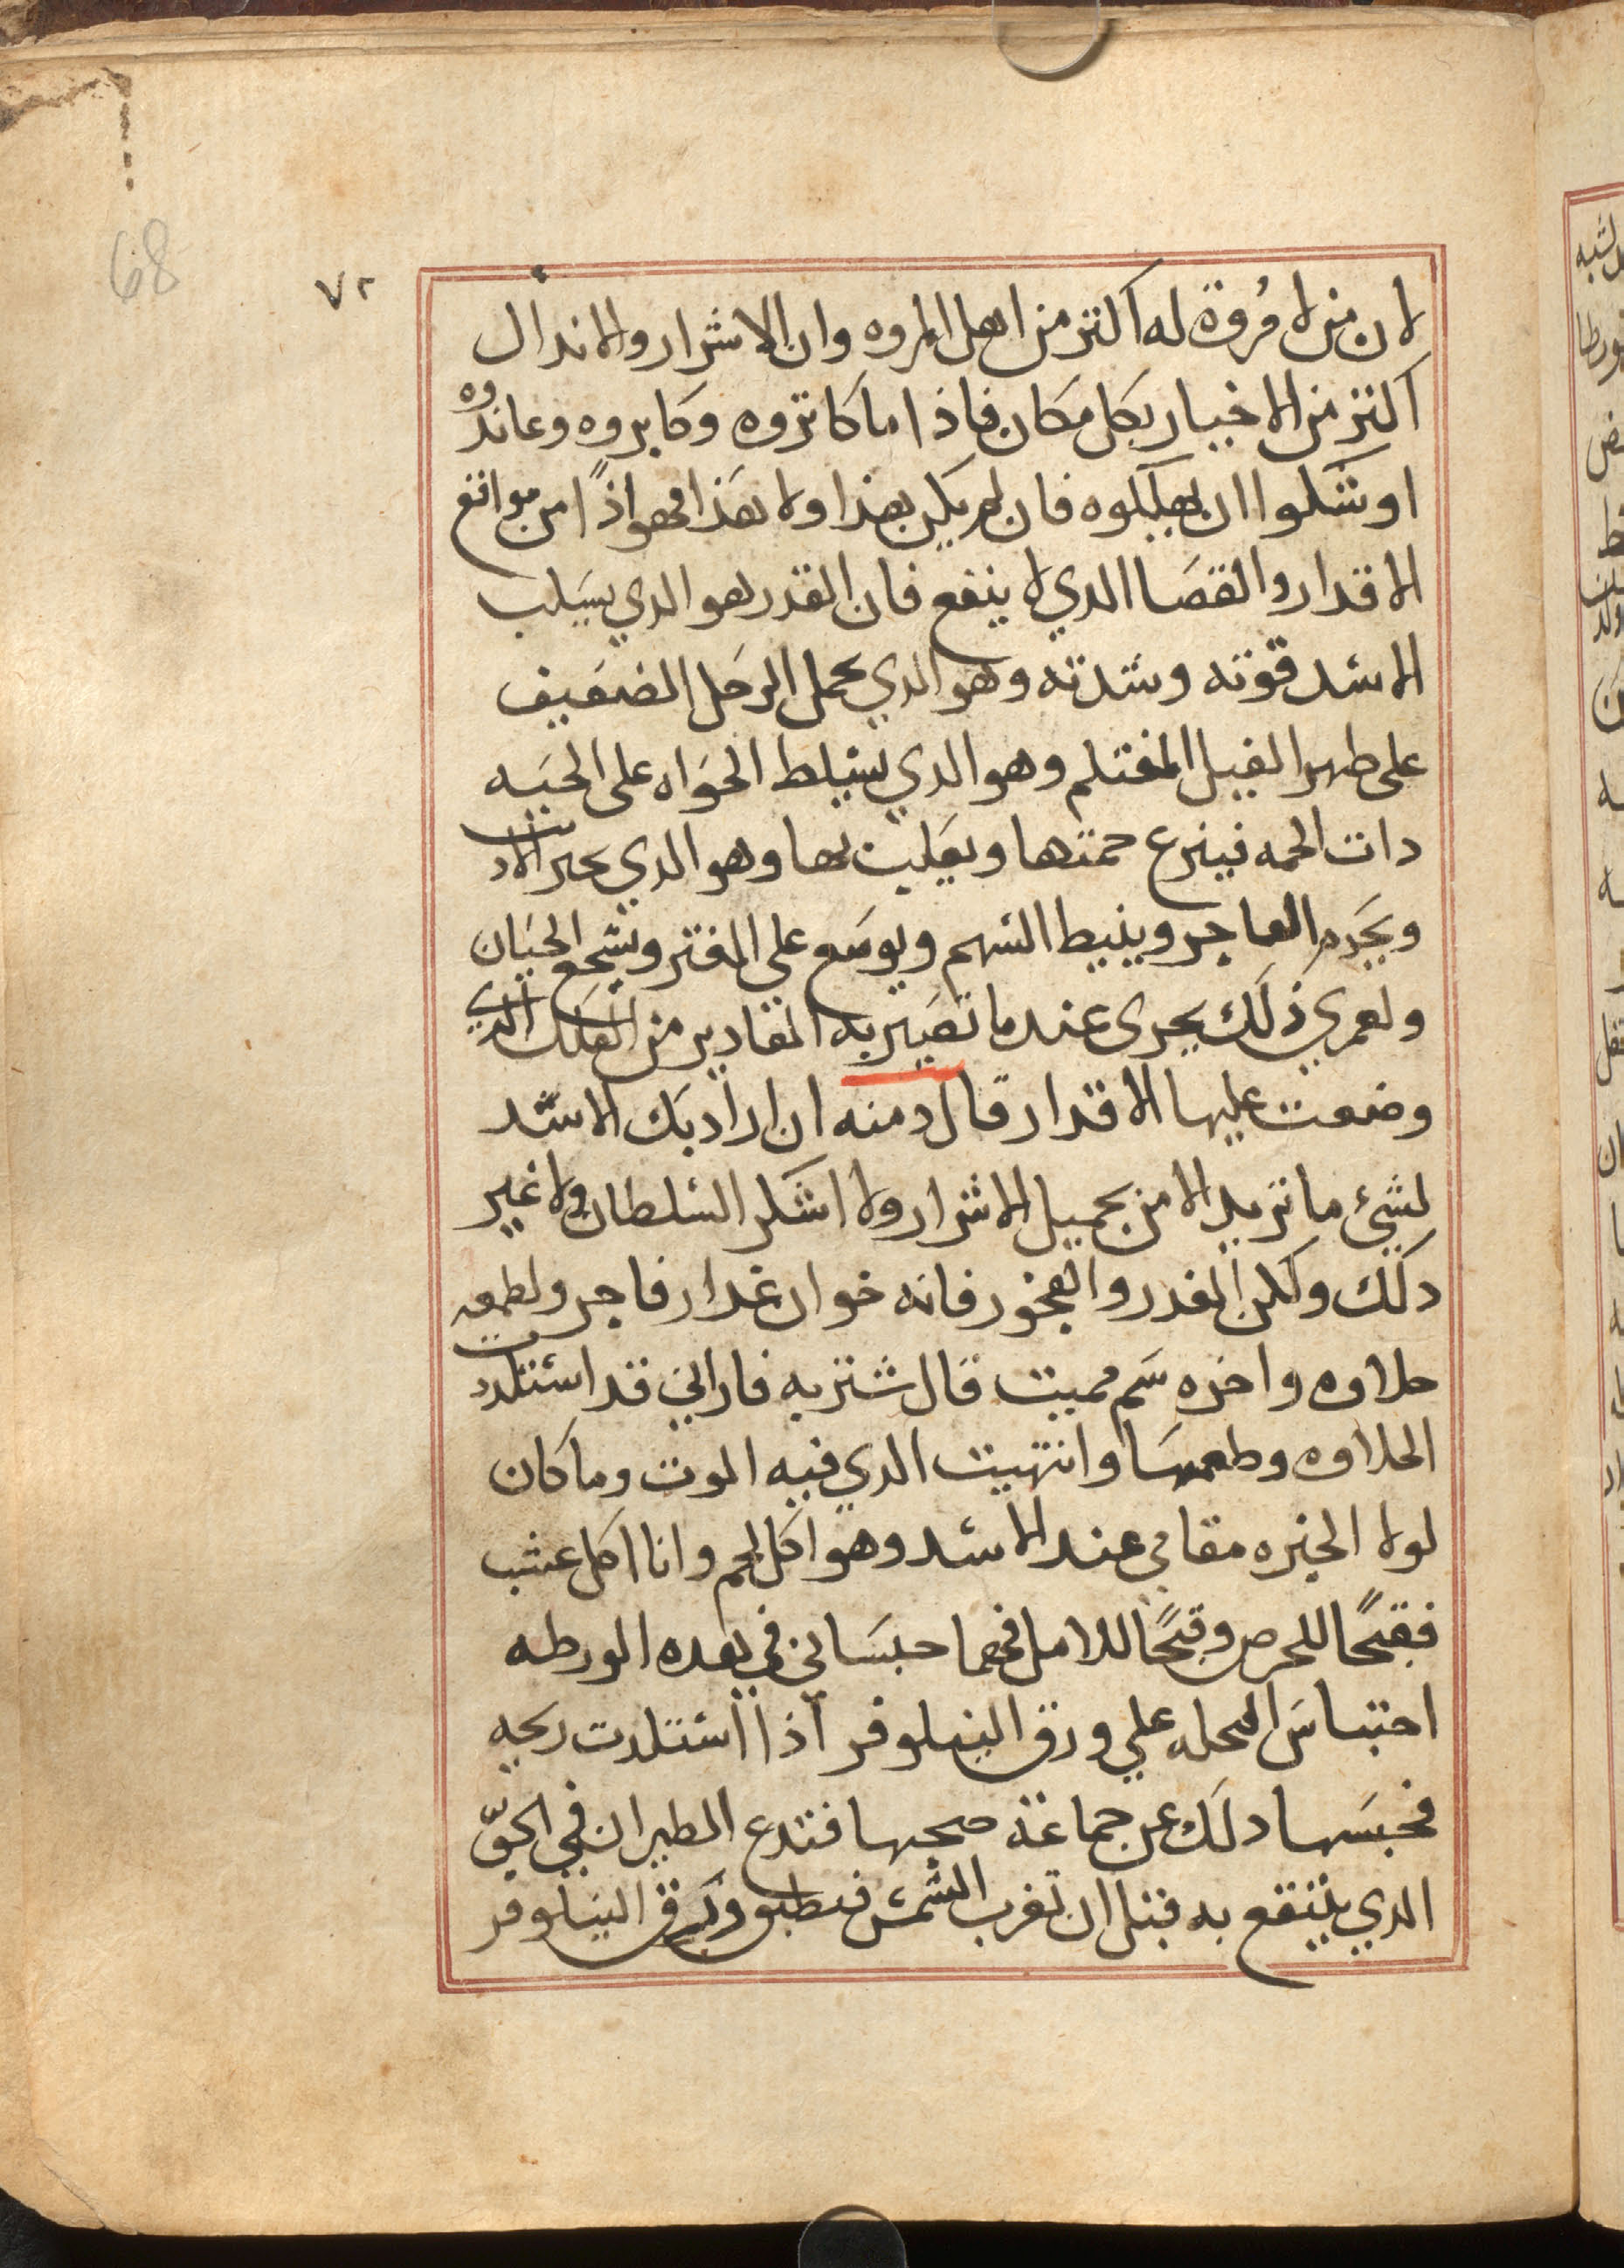 68
٧٢
لان من لا مُروة له اكثر من اهل المروه وان الاشرار والاندال
اكثر من الاخيار بكل مكان فاذا ما كاثروه وكابروه وعاندوه
اوشكوا ان يهلكوه فان لم يكن هذا ولا هذا فهو اذًا من مواقع
الاقدار والقضا الدي لا ينفع فان القدر هو الدي يسلب
الاسد قوته وشدته وهو الدي يحمل الرجل الضعيف
على ظهر الفيل المغتلم وهو الدي يسلط الحواه على الحيه
دات الحمه فينزع حمتها ويعلبث بها وهو الدي
ويحرم العاجر ويثبط الشهم ويوسع على المقتر ويشجع الجبان
ولعمري ذلك يجرى عند ما تصير به المقادير من العلل التي
وضعت عليها الاقدار قال دمنه ان اراد بك الاسد
لشئ ما تريد الا من تحميل الاشرار ولا اشكر السلطان ولا غير
دلك ولكن الغدر والفجور فانه خوان غدار فاجر ولطعمه
حلاوه واخره سم مميت قال شتربه فاراني قد استلددت
الحلاوه وطعمها وانتهيت الدي فيه الموت وما كان
لولا الحيره مقامي عند الاسد وهو اكل لحم وانا اكل عشب
فقبحًا للحرص وقبحًا للامل فهما حبساني في هده الورطه
احتباس النحله علي ورق النيلوفر اذا استلدت ريحه
فحبسها دلك عن جماعة صحبها فتدع الطيران في الجوّ
الدي ينتفع به قبل ان تغرب الشمس فيطبق ورق النيلوفر